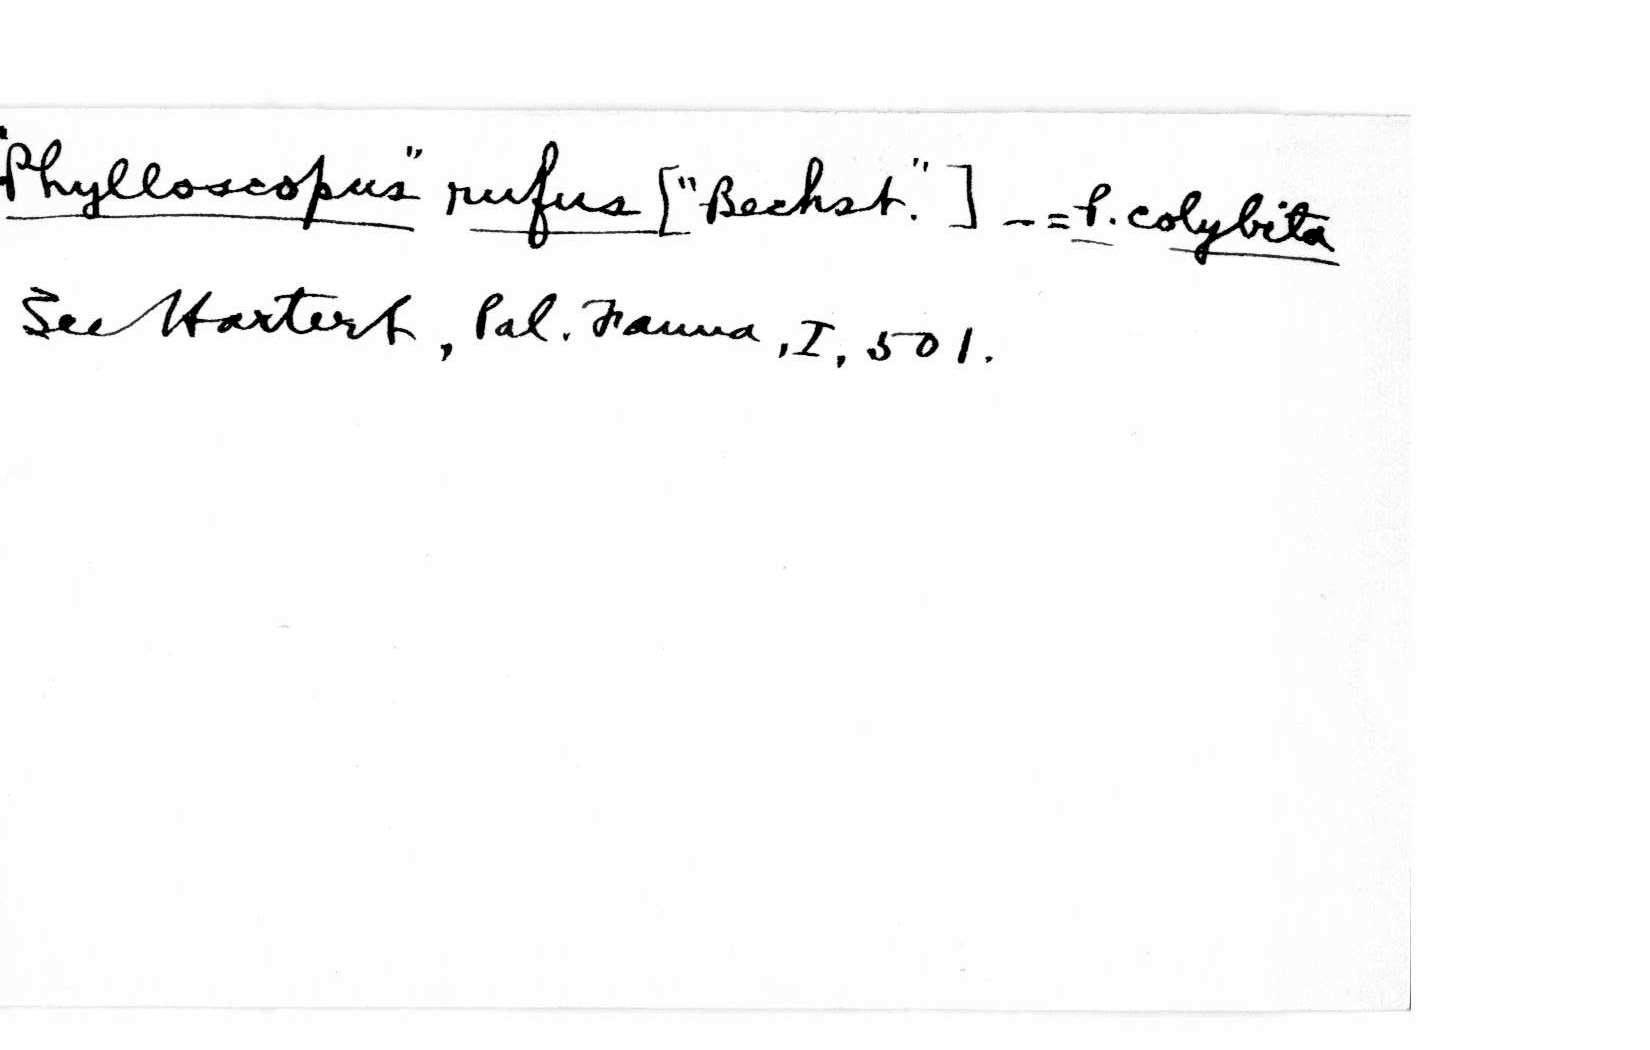 "Phylloscopus" rufus ["Bechst."] - = P. colybita
See Hartert, Pal. Fauna, I, 501.